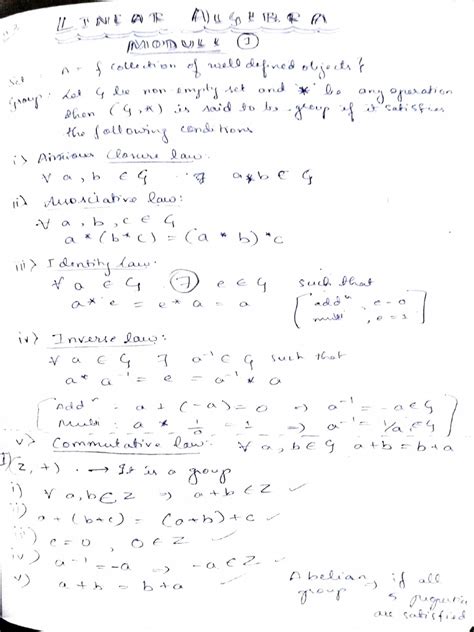 LINEAR ALGEBRA
MODULE ①
Set : A = { collection of well defined objects }
Group: Let G be non-empty set and '*' be any operation
then (G,*) is said to be group if it satisfies
the following conditions
i> Closure law:
∀ a, b ∈ G ⇒ a*b ∈ G
ii> Associative law:
∀ a, b, c ∈ G
a * (b * c) = (a * b) * c
iii> Identity law:
∀ a ∈ G ∃ e ∈ G such that
a * e = e * a = a
[ addⁿ : e = 0
mult , e = 1 ]
iv> Inverse law:
∀ a ∈ G ∃ a⁻¹ ∈ G such that
a * a⁻¹ = e = a⁻¹ * a
[ Addⁿ : a + (-a) = 0 ⇒ a⁻¹ = -a ∈ G
Mult : a * 1/a = 1 ⇒ a⁻¹ = 1/a ∈ G ]
v> Commutative law: ∀ a, b ∈ G a+b = b+a
1) (Z, +) . → It is a group
i) ∀ a, b ∈ Z ⇒ a+b ∈ Z ✓
ii) a + (b+c) = (a+b) + c ✓
iii) e = 0 , 0 ∈ Z ✓
iv) a⁻¹ = -a ⇒ -a ∈ Z ✓
v) a + b = b + a
Abelian, if all
group 5 properties
are satisfied